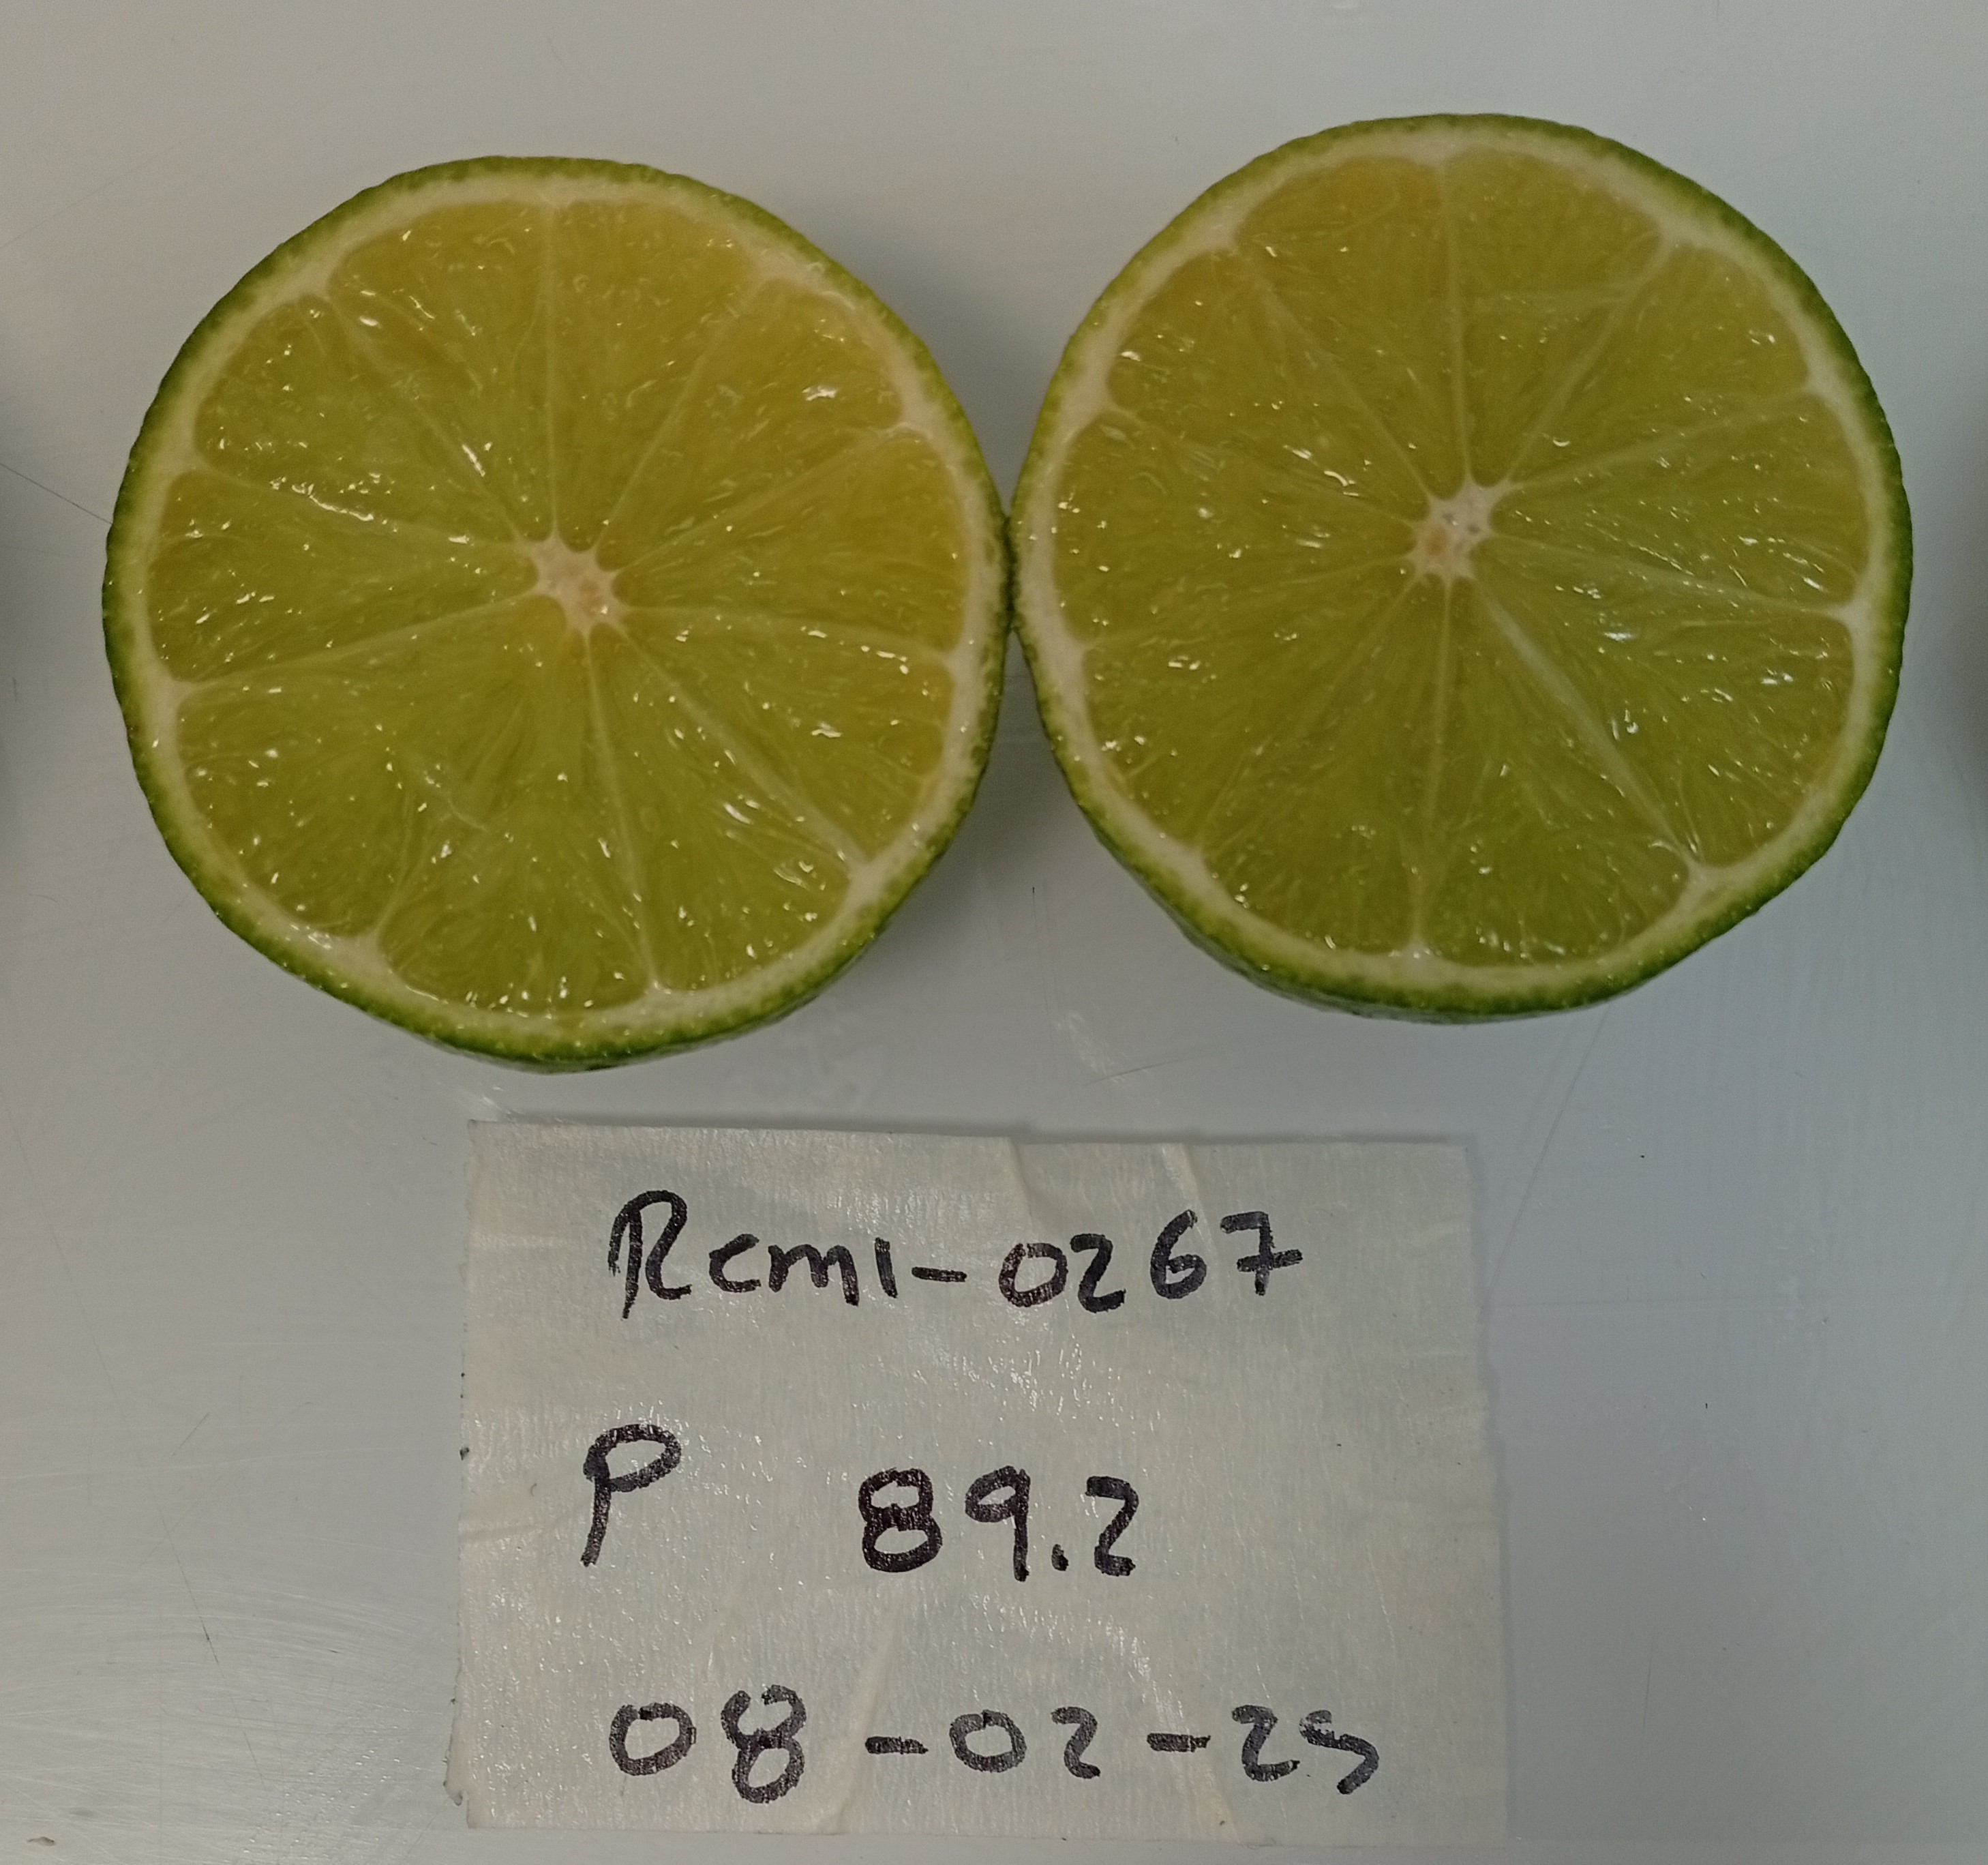 Rcm1-0267
P 89.2
08-02-25